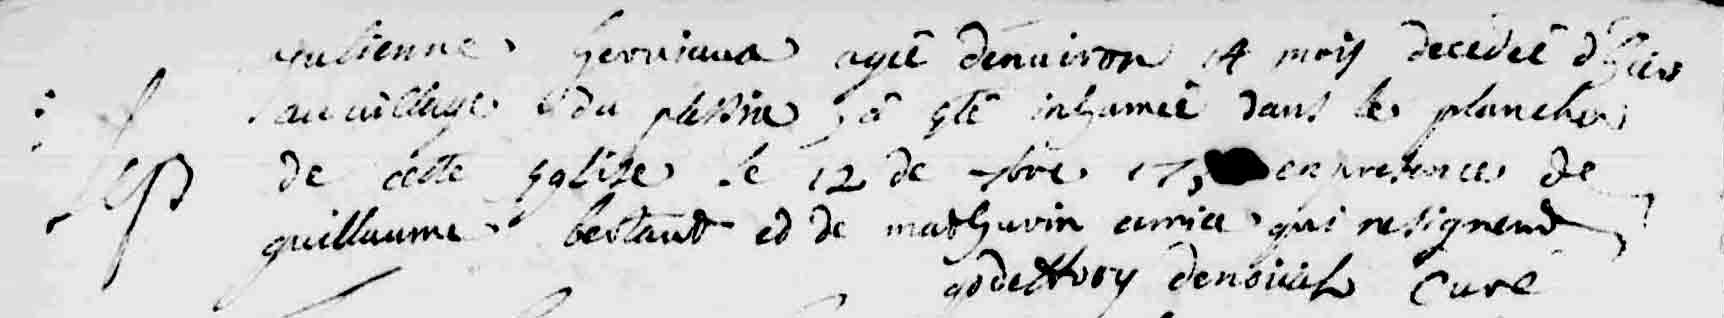 julienne herviaux agée denuiron 14 mois decedée d'hier
au uillage du plessix à eté inhumée dans le plancher
Sep de cette Eglise le 12 de 7bre 17 en presence de
guillaume bertaud et de mathurin amice qui ne signent
godeffroy denoüal Curé